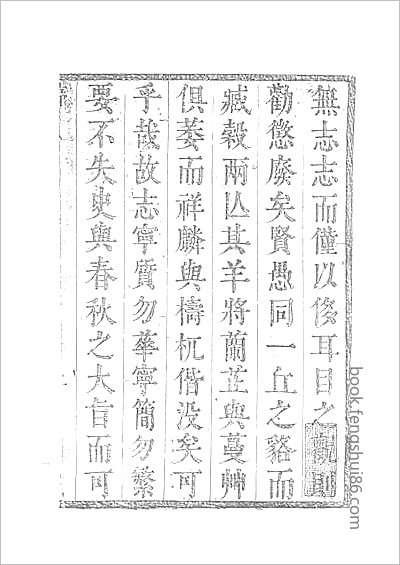 無志志而僅以侈耳目之觀則
勸懲廢矣賢愚同一丘之貉而
臧穀兩亾其羊將蘭芷與蔓艸
俱萎而祥麟與檮杌偕没矣可
乎哉故志寧質勿華寧簡勿繁
要不失史與春秋之大旨而可
book.fengshui86.com